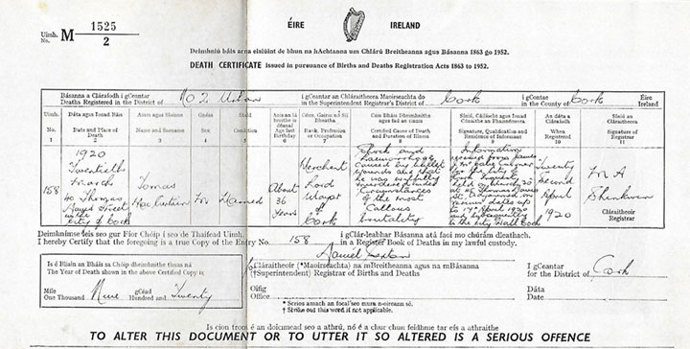 Uimh.
No. M 1525
2
ÉIRE IRELAND
Deimhniú báis arna eisiúint de bhun na hAchtanna um Chlárú Breitheanna agus Básanna 1863 go 1952.
DEATH CERTIFICATE issued in pursuance of Births and Deaths Registration Acts 1863 to 1952.
Básanna a Cláraíodh i gCeantar
Deaths Registered in the District of No 2 Urban
i gCeantar an Chláraitheora Maoirseachta do
in the Superintendent Registrar's District of Cork
i gContae
in the County of Cork
Éire
Ireland
Uimh.
No.
1
Dáta agus Ionad Báis
Date and Place of Death
2
Ainm agus Sloinne
Name and Surname
3
Gnéas
Sex
4
Staid
Condition
5
Age last Birthday
6
Rank, Profession or Occupation
7
Certified Cause of Death and Duration of Illness
8
Signature, Qualification and Residence of Informant
9
An dáta a Cláraíodh
When Registered
10
Síniú an Chláraitheora
Signature of Registrar
11
158
1920
Twentieth
March
40 Thomas
Davis Street
in the
City of Cork
Tomas
Mac Curtain
Married
About
36
Years
Merchant
Lord
Mayor
of
Cork
Shock and
haemorrhage
caused by bullet
wounds and that
he was wilfully
murdered under
Circumstances
of the most
Callous
brutality
Information
received from James
J. McCabe Coroner
for the City of
Cork Inquest
held
17th April 1920
City Hall Cork
Twenty
second
April
1920
Cláraitheoir
Registrar
Deimhnímse gur Fíor Chóip í seo de Thaifead Uimh.
I hereby Certify that the foregoing is a true Copy of the Entry No. 158
i gClár-leabhar Básanna atá faoi mo chúram dleathach.
in a Register Book of Deaths in my lawful custody.
Is é Bliain an Bháis sa Chóip dheimhnithe thuas ná
The Year of Death shown in the above Certified Copy is
Míle
One Thousand Nine
gCéad
Hundred and Twenty
Cláraitheoir (*Maoirseachta) na mBreitheanna agus na mBásanna
(†Superintendent) Registrar of Births and Deaths
i gCeantar
for the District of Cork
Oifig
Office
Dáta
Date
* Scrios amach an focal seo mura n-oireann sé.
† Strike out this word if not applicable.
Is cion trom é an doiciméad seo a athrú, nó é a chur chun feidhme tar éis a athraithe
TO ALTER THIS DOCUMENT OR TO UTTER IT SO ALTERED IS A SERIOUS OFFENCE